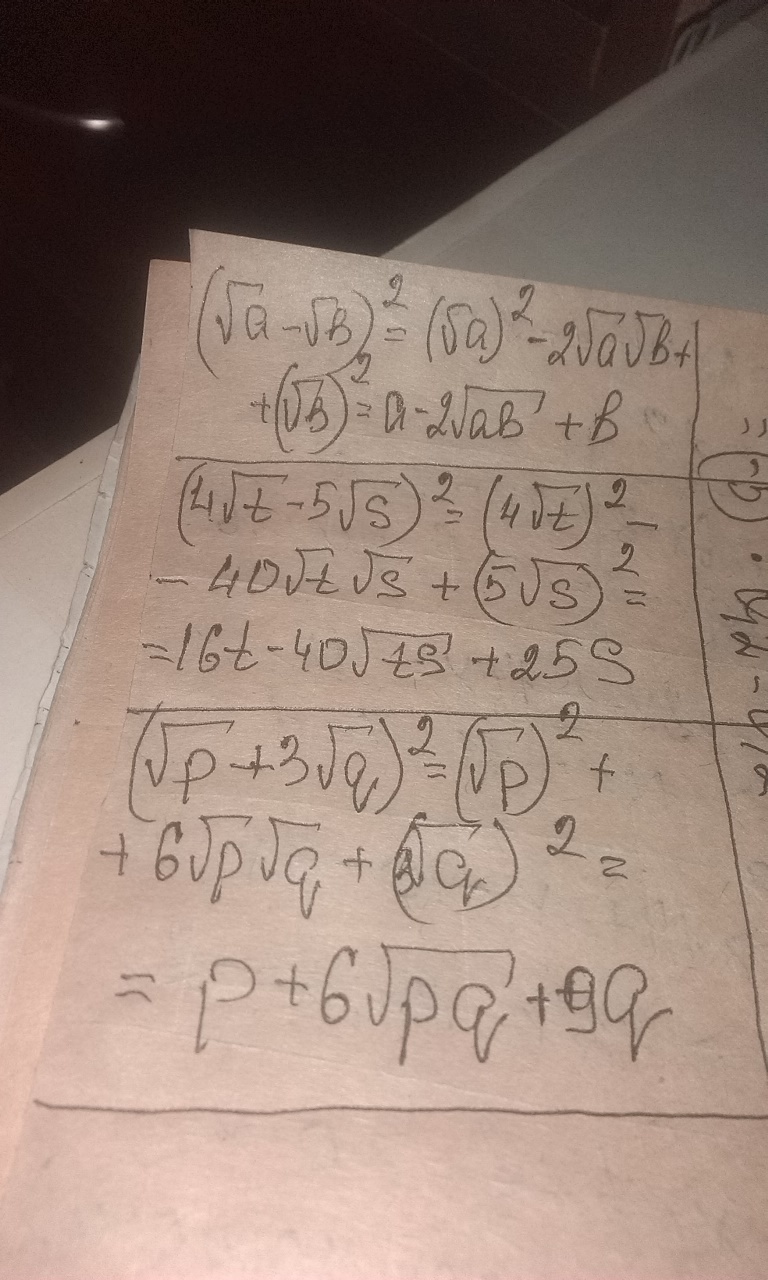 (√a - √b)² = (√a)² - 2√a√b +
+ (√b)² = a - 2√ab + b
(4√t - 5√s)² = (4√t)² -
- 40√t √s + (5√s)² =
= 16t - 40√ts + 25s
(√p + 3√q)² = (√p)² +
+ 6√p√q + (3√q)² =
= p + 6√pq + 9q